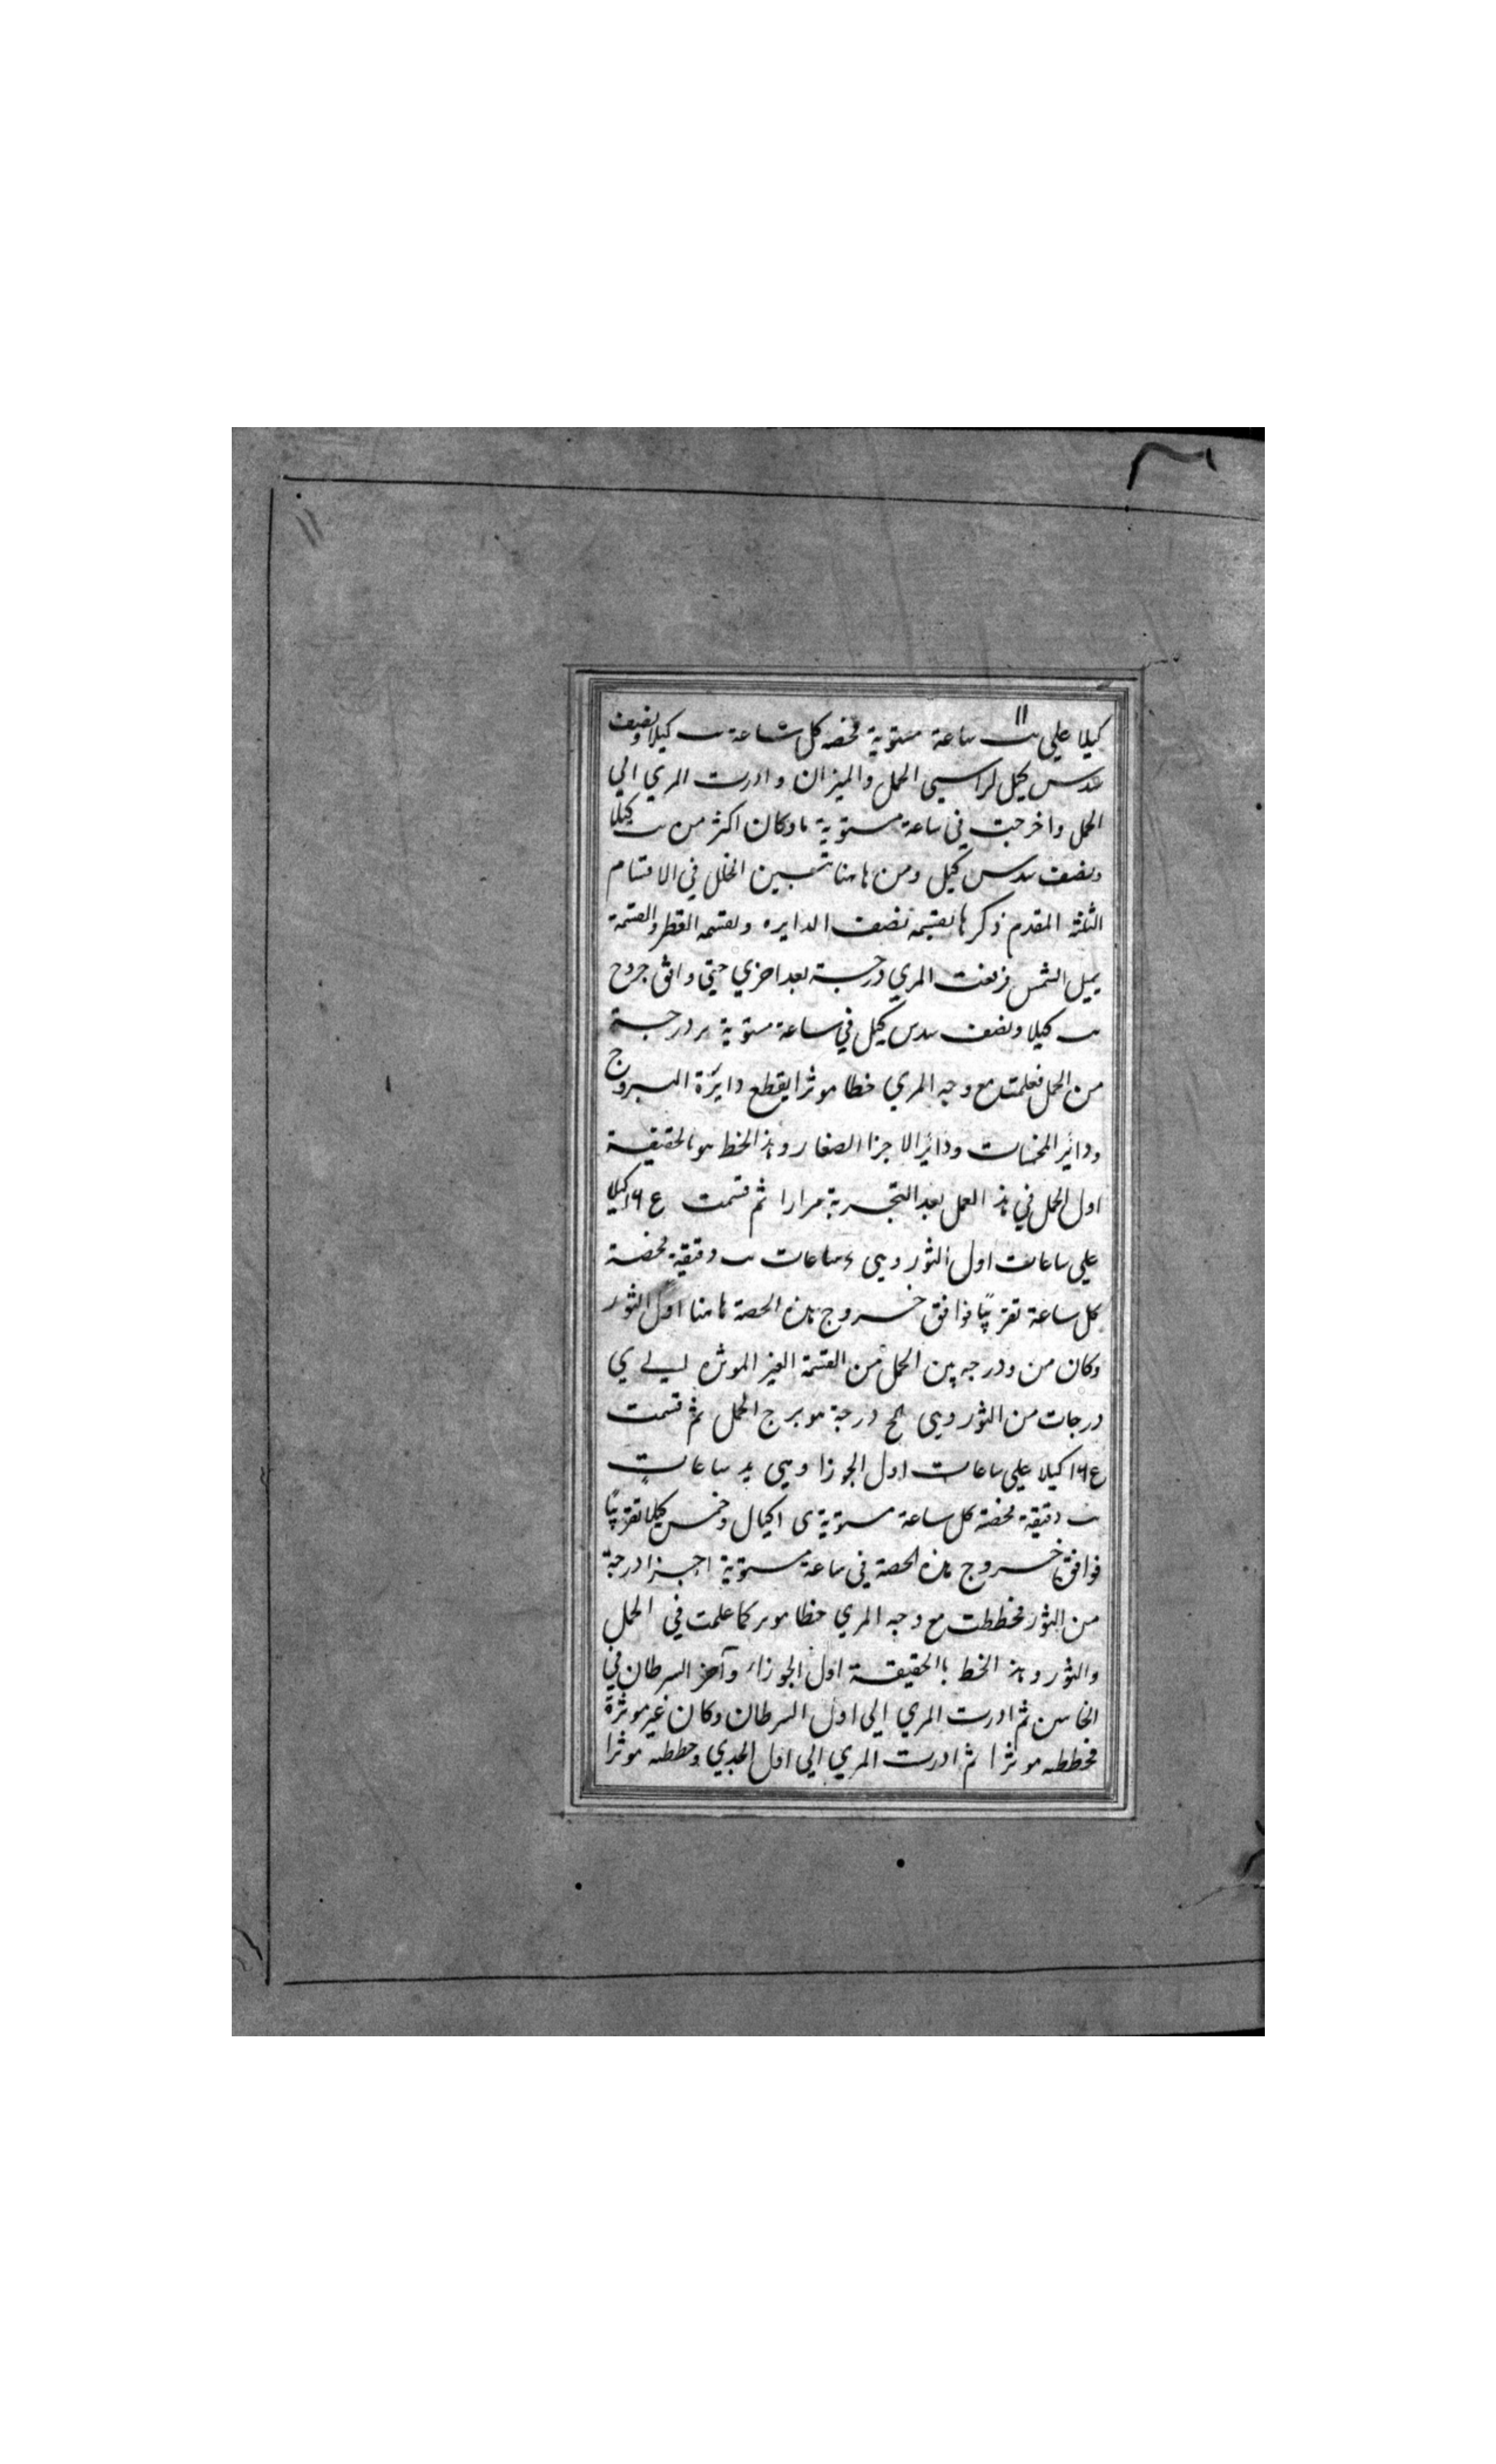 كيلا علي ىٮ ساعة مستوية فحصه كل ساعة ىٮ كيلا ونصف
سدس كيل لراسي الحمل والميزان وادرت المري الي
الحمل واخرجت في ساعة مستوية ما وكان اكثر من ىٮ كيلا
ونصف سدس كيل ومن هاهنا تبين الخلل في الاقسام
الثلثة المقدم ذكرها بقسمه نصف الدايره وبقسمه القطر والقسمة
بميل الشمس فرفعت المري درجة بعد اخري حتي وافق خروج
ىٮ كيلا ونصف سدس كيل في ساعة مستوية درجة
من الحمل فعلمت مع وجه المري خطا موثرا يقطع دايرة البروج
ودائر المخمسات ودائر الاجزا الصغار وهذ الخط هو بالحقيقة
اول الحمل في هذ العمل بعد التجربة مرارا ثم قسمت كيلا
علي ساعات اول الثور وهي ساعات دقيقة فحصة
كل ساعة تقريبًا فوافق خروج هذه الحصة هاهنا اول الثور
وكان من درجه من الحمل من القسمة الغير الموثره الي ي
درجات من الثور وهي كح درجة هو برج الحمل ثم قسمت
كيلا علي ساعات اول الجوزا وهي يد ساعات
دقيقة فحصة كل ساعة مستوية ى اكيال وخمس كيلا تقريبًا
فوافق خروج هذه الحصة في ساعة مستوية اجزا درجة
من الثور فخططت مع وجه المري خطا موثر كما علمت في الحمل
والثور وهذ الخط باالحقيقة اول الجوزاء وآخر السرطان في
الخامس ثم ادرت المري الي اول السرطان وكان غير موثرة
فخططه موثرا ثم ادرت المري الي اول الجدي وخططه موثرا